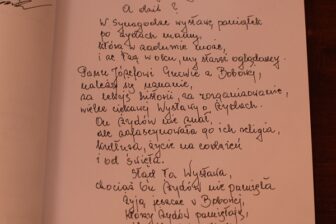 A dziś?
W synagodze wystawę pamiątek
po Żydach mamy,
która w zadumie może,
i ze łzą w oku, my starsi oglądamy.
Panu Józefowi Gucwie z Bobowej,
należy się uznanie,
za lekcję historii, za zorganizowanie,
wielce ciekawej Wystawy o Żydach.
On Żydów nie znał,
ale zafascynowała go ich religia,
kultura, życie na codzień
i od święta.
Stąd Ta Wystawa,
chociaż On Żydów nie pamięta
żyją jeszcze w Bobowej,
którzy Żydów pamiętają,